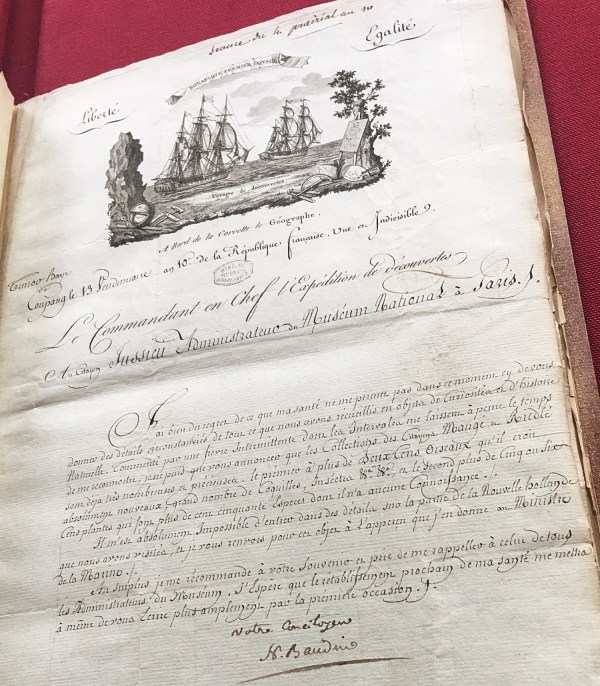 Seance du 4 prairial an 10
Liberté
Egalité
Voyage de découvertes
A Bord de la Corvette le Géographe.
an 10.e de la République française, Une et Indivisible.
Coupang le 13 Vendemiaire
Le Commandant en Chef l'Expédition de découvertes
Au Citoyen Jussieu Administrateur du Muséum National à Paris.
J'ai bien du regret de ce que ma santé ne me permet pas dans ce moment cy de vous
donner des détails circonstanciés de tout ce que nous avons recueillis en objets de Curiosités et d'histoire
Naturelle. Tourmenté par une fievre Intermittente dont les Intervales me laissent à peine le temps
de me reconnoitre, je ne puis que vous annoncer que les Collections des Citoyens Mauge et Riedlé
sont deja très nombreuses et précieuses. le premier à plus de Deux Cens Oiseaux qu'il croit
absolument nouveaux, grand nombre de Coquilles, Insectes &.a &.a et le second plus de Cinq ou Six
Cens plantes qui font plus de cent cinquante Especes dont il n'a aucune Connoissance.
Il m'est absolument Impossible d'entrer dans des détails sur la partie de la Nouvelle hollande
que nous avons visitée, et je vous renvois pour cet objet à L'apperçu que j'en donne au Ministre
de la Marine.
Au surplus je me recommande à votre Souvenir et prie de me rappeller à celui de tous
les Administrateurs du Museum. J'Espère que le retablissement prochain de ma santé me mettra
à même de vous Ecrire plus amplement par la premiere occasion.
votre concitoyen
N. Baudin